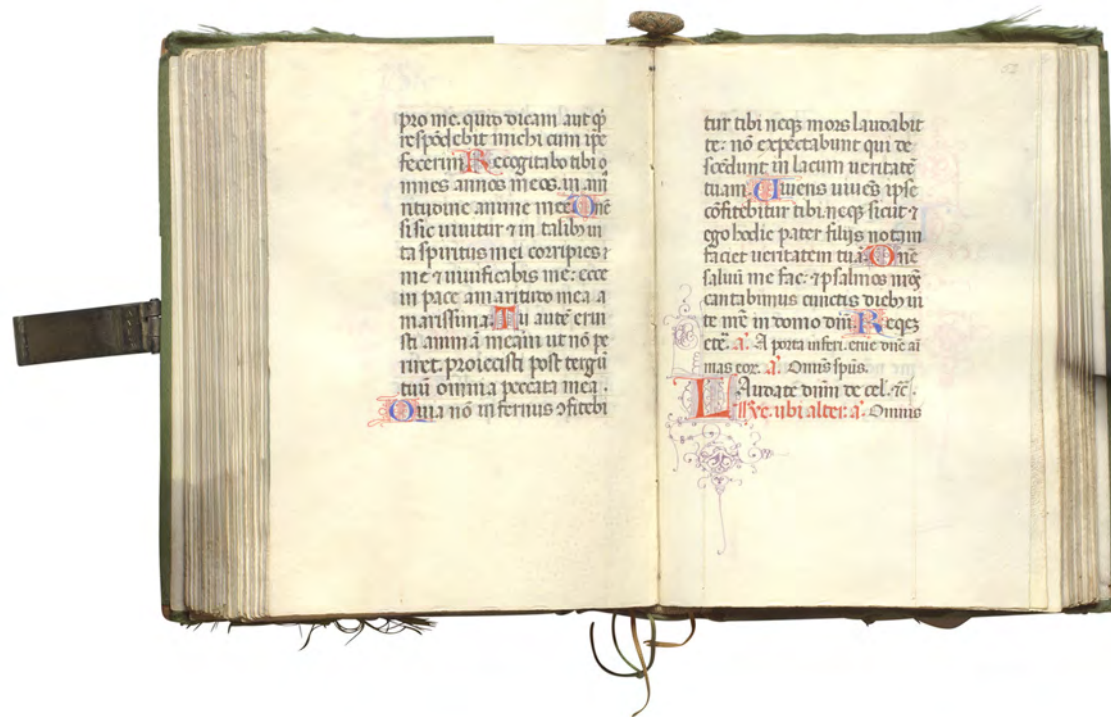 pro me. quid dicam aut q̇
respōdebit michi cum ipe
fecerim Recogitabo tibi o
mnes annos meos. in am
ritudine anime mee. Dne
si sic uiuitur ⁊ in talibꝫ ui
ta spiritus mei corripies
me ⁊ uiuificabis me: ecce
in pace amaritudo mea a
marissima. Tu autē erui
sti animā meam ut nō pe
riret. proiecisti post tergū
tuū omnia peccata mea.
Quia nō infernus ꝯfitebi
53
tur tibi neqꝫ mors laudabit
te: nō expectabunt qui de
scēdunt in lacum ueritatē
tuam. Viuens uiuēs ipse
cōfitebitur tibi. neqꝫ sicut ⁊
ego hodie pater filijs notam
faciet ueritatem tuā. Dne
saluū me fac: ⁊ psalmos nr̄os
cantabimus cunctis diebꝫ ui
te nr̄e in domo dn̄i. Reqꝫ
etē. a. A porta inferi. erue dn̄e ai
mas eor. a. Omīs spūs.
Laudate dn̄m de cel. ⁊c.
Re. ubi alter. a. Omnis